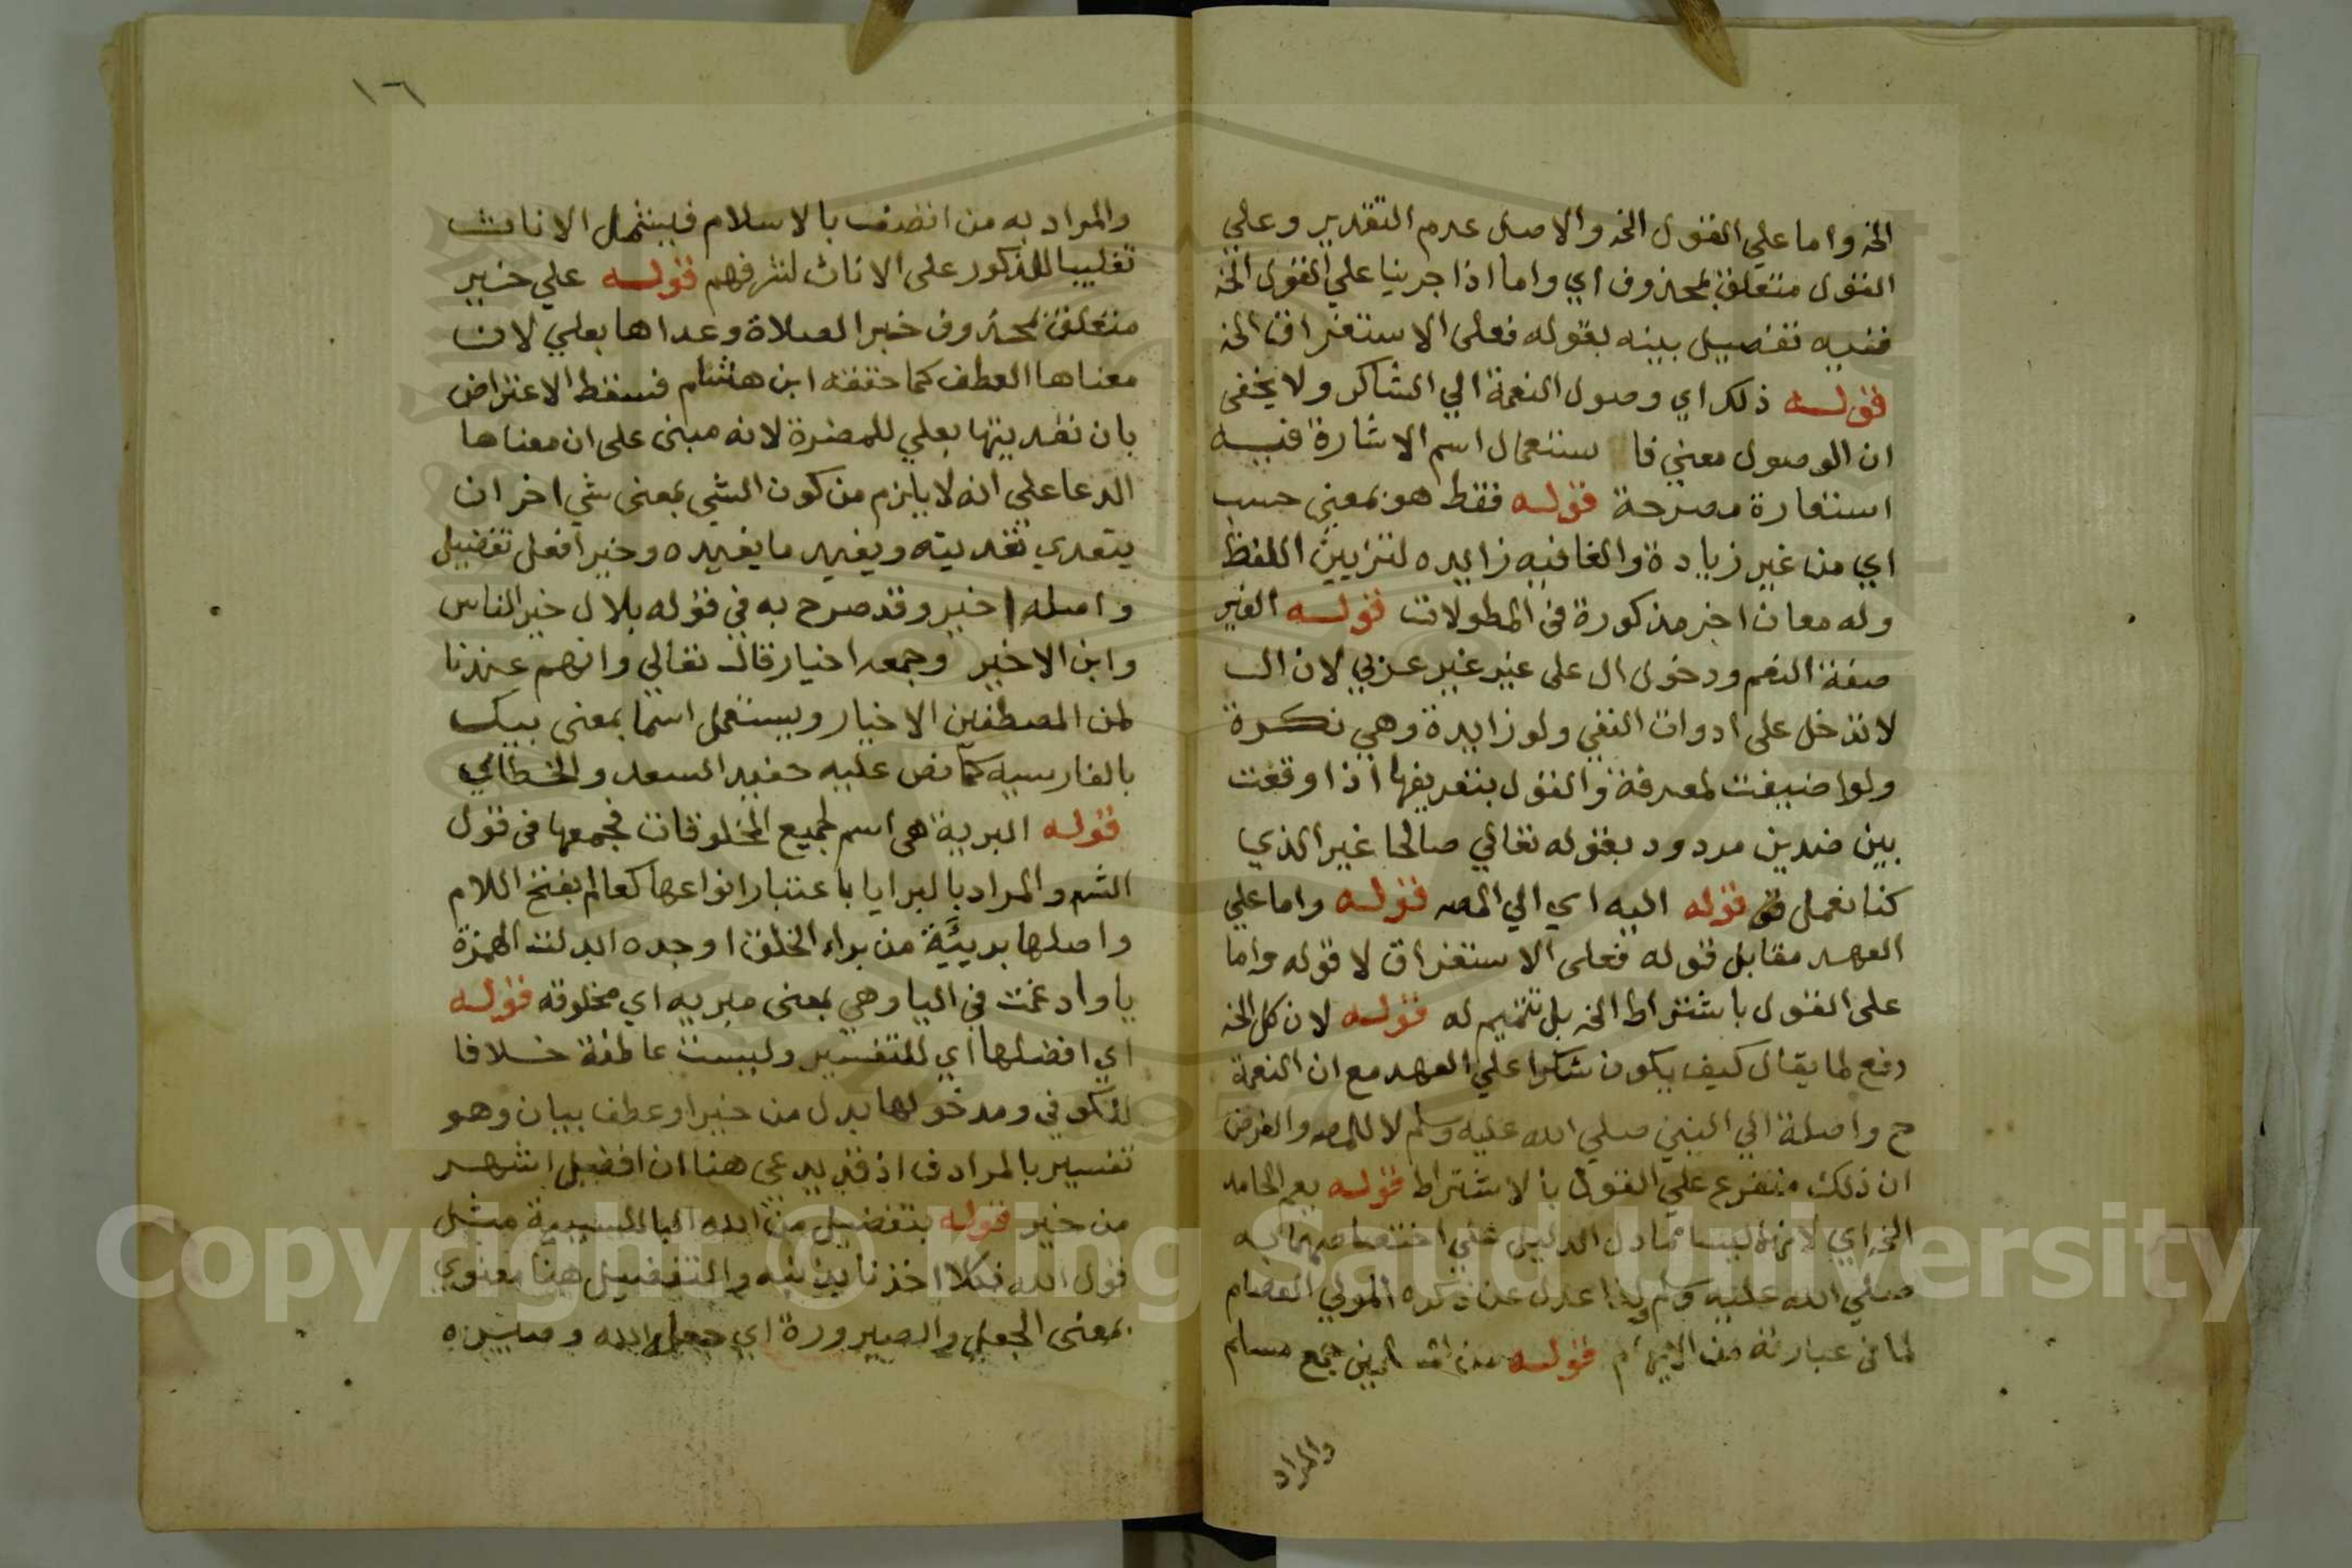 الخ واما علي القول الخ والاصل عدم التقدير وعلي
القول متعلق بمحذوف اي واما اذا جرينا علي القول الخ
ففيه تفصيل بينه بقوله فعلى الاستغراق الخ
قوله ذلك اي وصول النعمة الي الشاكر ولا يخفى
ان الوصول معني فا ستعمال اسم الاشارة فيه
استعارة مصرحة قوله فقط هو بمعني حسب
اي من غير زيادة والفا فيه زايده لتزيين اللفظ
وله معان اخر مذكورة في المطولات قوله الغير
صفة النعم ودخول ال على غير غير عربي لان ال
لا تدخل على ادوات النفي ولو زايدة وهي نكرة
ولو اضيفت لمعرفة والقول بتعريفها اذا وقعت
بين ضدين مردود بقوله تعالي صالحا غير الذي
كنا نعمل قوله اليه اي الي المص قوله واما علي
العهد مقابل قوله فعلى الاستغراق لا قوله واما
على القول باشتراط الخ بل تتميم له قوله لان كل الخ
دفع لما يقال كيف يكون شكرا علي العهد مع ان النعمة
ح واصلة الي النبي صلي الله عليه وسلم لا للمص والغرض
ان ذلك متفرع علي القول بالاشتراط قوله يعم الحامد
الخ اي لانها ليسا مما دل الدليل علي اختصاصهما به
صلي الله عليه وسلم ولذا عدل عن ذكره المولي العصام
لما في عبارته من الايهام قوله جمع مسلم
والمراد
١٦
والمراد به من اتصف بالاسلام فيشمل الاناث
تغليبا للذكور على الاناث لشرفهم قوله علي خير
متعلق بمحذوف خبر الصلاة وعداها بعلي لان
معناها العطف كما حققه ابن هشام فسقط الاعتراض
بان تعديتها بعلي للمضرة لانه مبنى على ان معناها
الدعا علي انه لا يلزم من كون الشي بمعنى شي اخر ان
يتعدي تعديته ويفيد ما يفيده وخير افعل تفضيل
واصله اخير وقد صرح به في قوله بلال خير الناس
وابن الاخير وجمعه اخيار قال تعالي وانهم عندنا
لمن المصطفين الاخيار ويستعمل اسما بمعنى بيك
بالفارسيه كما نص عليه حفيد السعد والخطائي
قوله البرية هي اسم لجميع المخلوقات فجمعها في قول
الشم والمراد بالبرايا باعتبار انواعها كعالم بفتح اللام
واصلها بريئة من براء الخلق اوجده ابدلت الهمزة
يا وادغمت في اليا وهي بمعنى مبريه اي مخلوقه قوله
اي افضلها اي للتفسير وليست عاطفة خلافا
للكوفي ومدخولها بدل من خير او عطف بيان وهو
تفسير بالمرادف اذ قد يدعى هنا ان افضل اشهر
من خير قوله بتفضيل من الله البا للسببية مثل
قول الله فكلا اخذنا بذنبه والتفضيل هنا معنوي
بمعنى الجعل والصيرورة اي جعل الله وصيره
Copyright © King Saud University